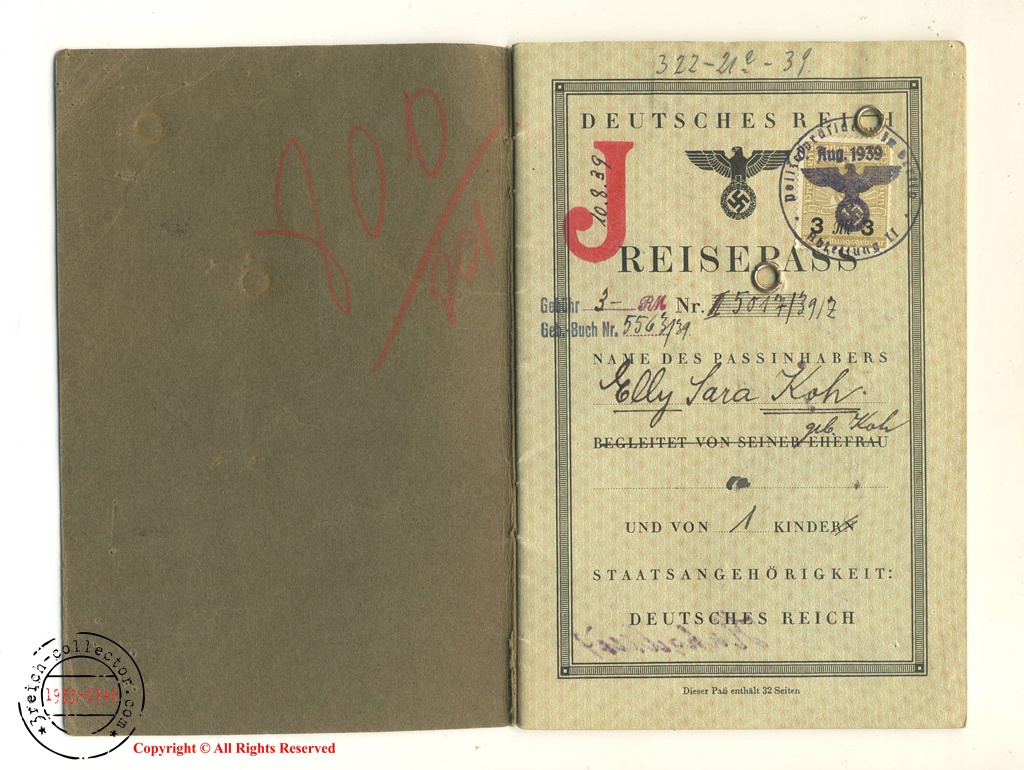 700/
322-21e-39
DEUTSCHES REICH
Polizeipräsident in Berlin
Aug. 1939
3 RM 3
Abteilung II
J
10.8.39
REISEPASS
Gebühr 3- RM Nr. 5017/39/2
Geb.-Buch Nr. 5563/39
NAME DES PASSINHABERS
Elly Sara Koh
geb Koh
BEGLEITET VON SEINER EHEFRAU
UND VON 1 KINDERN
STAATSANGEHÖRIGKEIT:
DEUTSCHES REICH
Dieser Paß enthält 32 Seiten
3reich-collector.com
1933-1945
Copyright © All Rights Reserved